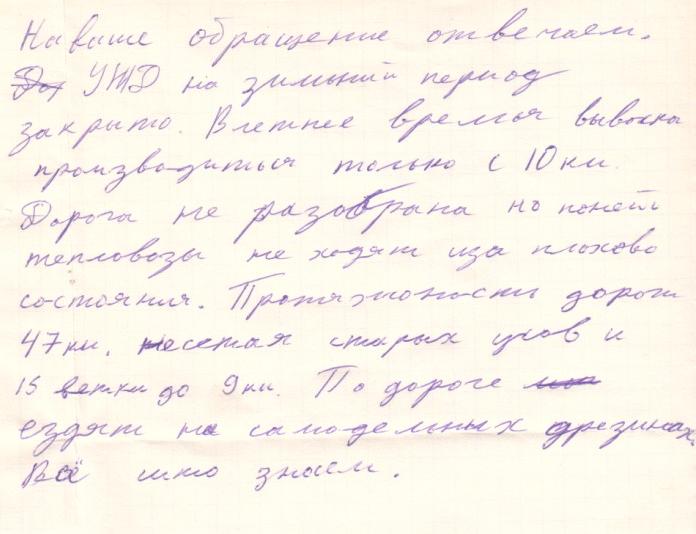 На ваше обращение отвечаем.
УЖД на зимний период
закрыто. В летнее время вывозка
производиться только с 10 км.
Дорога не разобрана но поней
тепловозы не ходят иза плохово
состояния. Протяжоность дороги
47 км. несчетая старых усов и
15 ветки до 9 км. По дороге
ездят на самодельных дрезинах.
Всё што знаем.